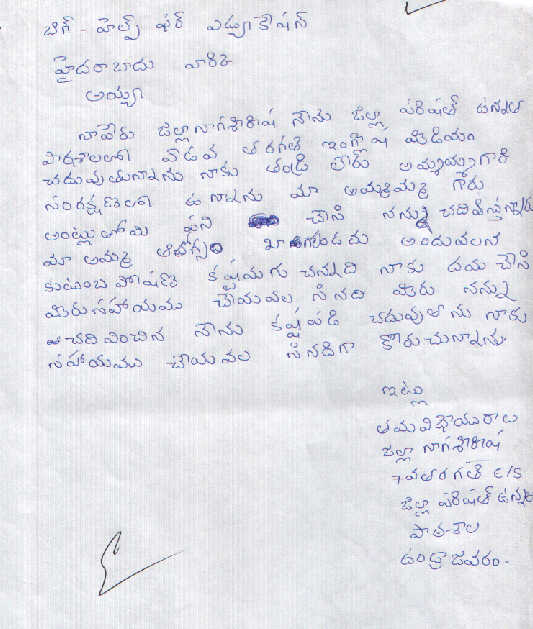 బిగ్ - హెల్ప్ ఫర్ ఎడ్యుకేషన్
హైదరాబాదు వారికి
అయ్యా
నాపేరు జిల్లా నాగశిరీష నేను జిల్లా పరిషత్ ఉన్నత
పాఠశాలలో 7వ తరగతి ఇంగ్లీషు మీడియం
చదువుతున్నాను నాకు తండ్రి లేరు అమ్మయ్యగారి
సంరక్షణలో ఉన్నాను మా అమ్మమ్మ గారు
అంట్లుతోమి పని చేసి నన్ను చదివిస్తున్నారు
మా అమ్మ ఆరోగ్యం బాగుండదు అందువలన
కుటుంబ పోషణ కష్టమగు చున్నది నాకు దయ చేసి
మీరు సహాయము చేయవల సినది మీరు నన్ను
చదివించిన నేను కష్టపడి చదువుతాను నాకు
సహాయము చేయవల సినదిగా కోరుచున్నాను.
ఇట్లు
తమ విధేయురాలు
జిల్లా నాగశిరీష
7వతరగతి E/S
జిల్లా పరిషత్ ఉన్నత
పాఠశాల
ఉండ్రాజవరం.